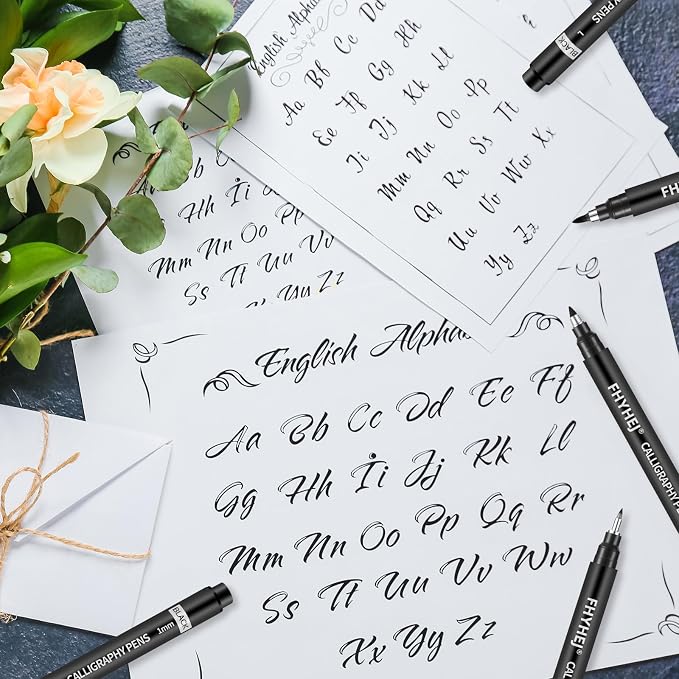 English Alpha
Aa Bb Cc Dd
Ee Fp Gg Hh
Ii Jj Kk Ll
Mm Nn Oo Pp
Qq Rr Ss Tt
Uu Vv Ww Xx
Yy Zz
Hh Ii
Mm Nn Oo Pp
Ss Tt Uu Vv
Yy Zz
English Alpha
Aa Bb Cc Dd Ee Ff
Gg Hh Ii Jj Kk Ll
Mm Nn Oo Pp Qq Rr
Ss Tt Uu Vv Ww
Xx Yy Zz
Y PENS
L
BLACK
FH
FHYHEJ® CALLIGRAPHY PEN
FHYHEJ® CAL
CALLIGRAPHY PENS 1mm
BLACK